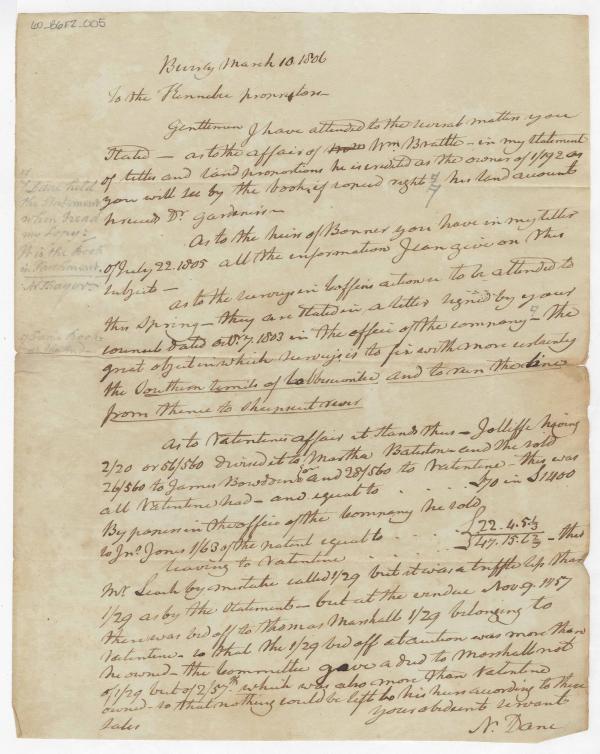 60_8682_005
Beverly March 10 1806
To the Kennebec proprietors
Gentlemen I have attended to the several matters you
stated — as to the affairs of Wm. Brattle — in my statement
of titles and land proportions he is credited as the owner of 1/192 as
you will see by the book, of coned right his land account
preceeds Dr Gardiners —
As to the heirs of Bonner you have in my letter
of July 22. 1805 all the information I can give on this
subject —
As to the surveys in Coffins action to be attended to
this Spring — they are stated in a letter signed by your
council dated 1803 in the office of the company — the
great object in which surveys is to fix with more certainty
the Southern limits of Cobbiscontee and to run the line
from thence to Sheepscut river
As to Valentines affair it stands thus — Jolliffe having
2/20 or 56/560 devised it to Martha Bateston — and she sold
26/560 to James Bowdoin Esqr and 28/560 to Valentine — this was
all Valentine had — and equal to . . . . £70 in £1400
By papers in the office of the Company he sold
to Jno. Jones 1/63 of the patent equal to . . . . £22.4.5⅓
leaving to Valentine . . . . . £47.15.6⅔ — this
Mr. Leach by mistake called 1/29 but it was a triffle less than
1/29 as by the Statements — but at the vendue Nov. 9. 1757
there was bid off to Thomas Marshall 1/29 belonging to
Valentine — so that the 1/29 bid off at auction was more than
he owned — the Committee gave a deed to Marshall not
of 1/29 but of 2/57th which was also more than Valentine
owned — so that nothing could be left to his heirs according to these
sales
your obedient servant
N. Dane
held
the Statement
when I read
my Copy:
It is the Book
in Parchment.
N Thayer